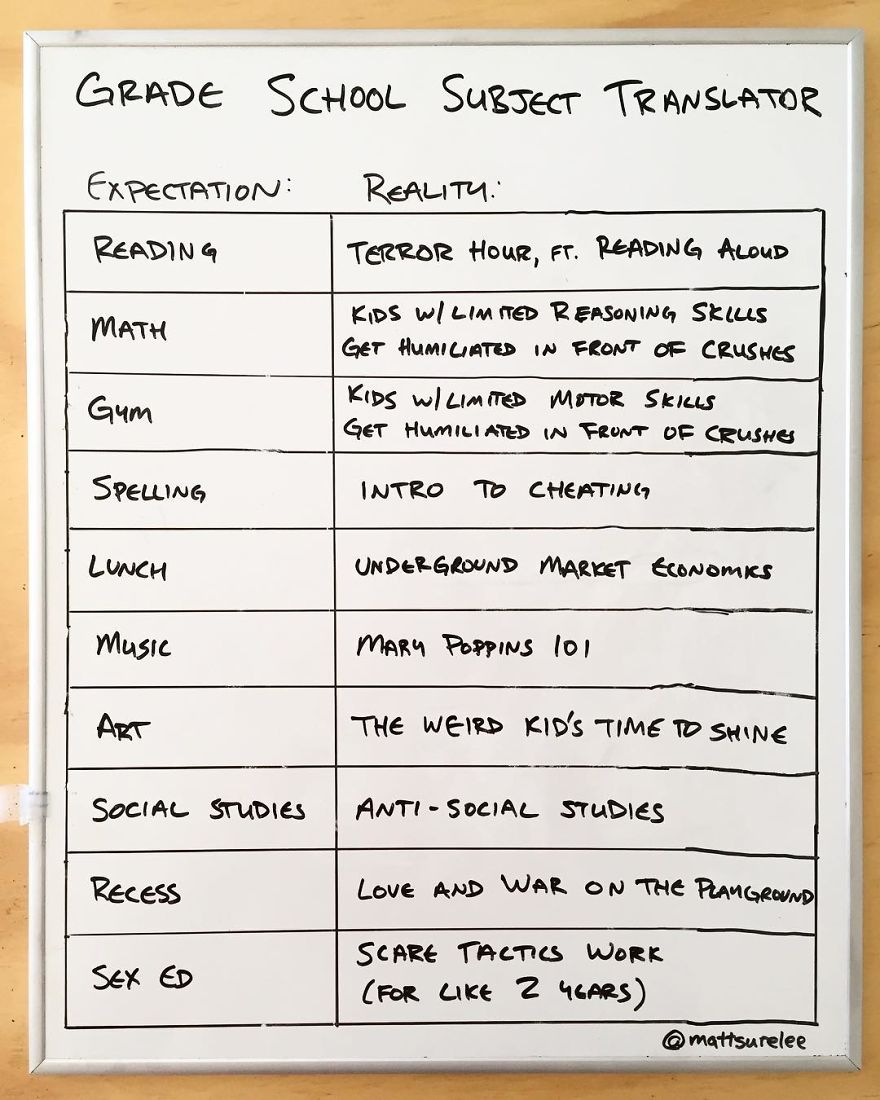 GRADE SCHOOL SUBJECT TRANSLATOR
EXPECTATION: REALITY:
READING TERROR HOUR, FT. READING ALOUD
MATH KIDS W/ LIMITED REASONING SKILLS
GET HUMILIATED IN FRONT OF CRUSHES
GYM KIDS W/ LIMITED MOTOR SKILLS
GET HUMILIATED IN FRONT OF CRUSHES
SPELLING INTRO TO CHEATING
LUNCH UNDERGROUND MARKET ECONOMICS
MUSIC MARY POPPINS 101
ART THE WEIRD KID'S TIME TO SHINE
SOCIAL STUDIES ANTI-SOCIAL STUDIES
RECESS LOVE AND WAR ON THE PLAYGROUND
SEX ED SCARE TACTICS WORK
(FOR LIKE 2 YEARS)
@mattsurelee